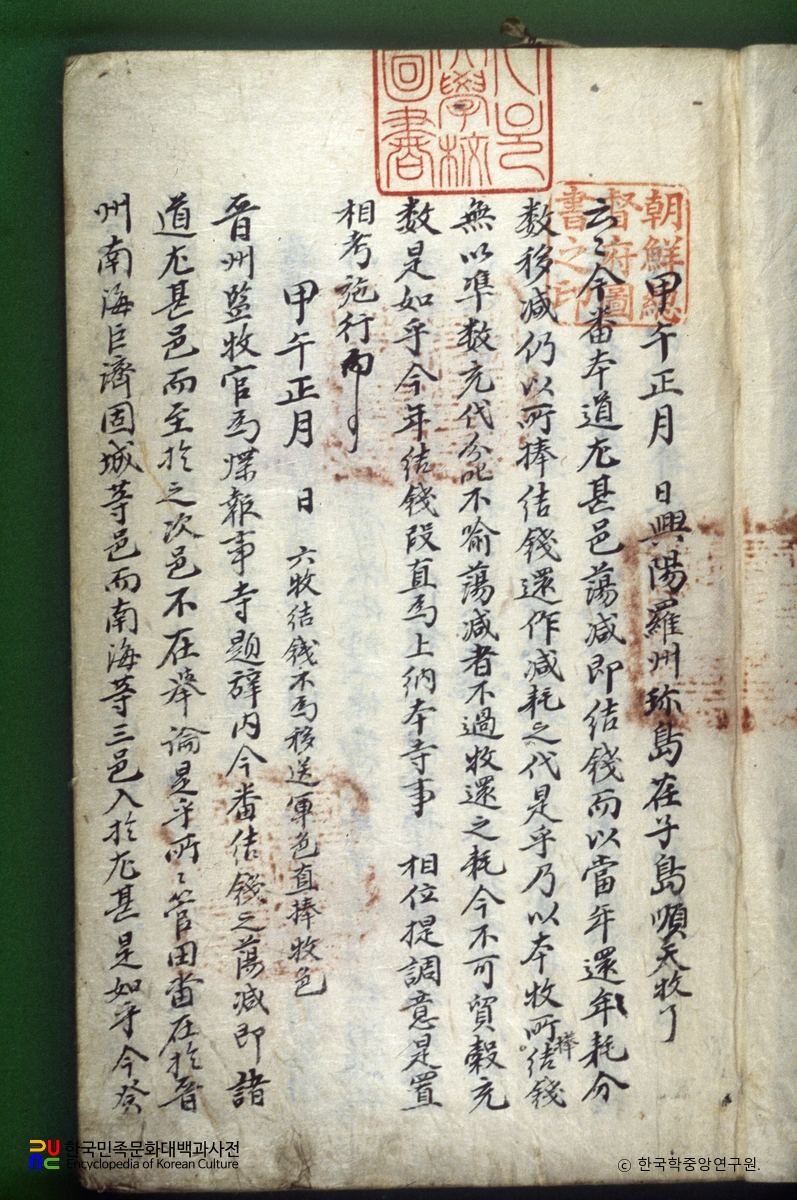 甲午正月 日興陽羅州珎島茬子島順天牧了
云〻今番本道尤甚邑蕩减即結錢而以當年還年耗分
数移减仍以所捧結錢還作减耗之代是乎乃以本牧所捧結錢
無以準数充代分叱不喻蕩减者不過牧還之耗今不可貿穀充
数是如乎今年結錢段直爲上納本寺事 相位提調意是置
相考施行向事
甲午正月 日 六牧結錢不爲移送軍色直捧牧色
晋州監牧官爲牒報事寺題辞内今番結錢之蕩减即諸
道尤甚邑而至於之次邑不在擧論是乎所〻管田畓在於晋
州南海巨濟固城等邑而南海等三邑入於尤甚是如乎今癸
朝鮮總督府圖書之印
學校圖書
한국민족문화대백과사전
Encyclopedia of Korean Culture
ⓒ 한국학중앙연구원.